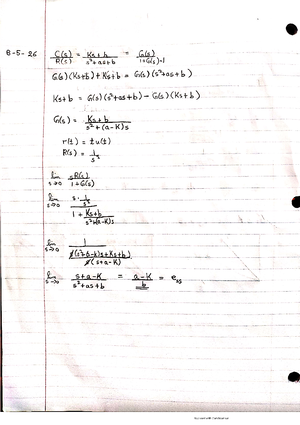 B-5-26 C(s)/R(s) = Ks+b/s²+as+b = G(s)/1+G(s)·1
G(s)(Ks+b)+Ks+b = G(s)(s²+as+b)
Ks+b = G(s)(s²+as+b) - G(s)(Ks+b)
G(s) = Ks+b/s²+(a-K)s
r(t) = t u(t)
R(s) = 1/s²
lim s→0 sR(s)/1+G(s)
lim s→0 s·1/s²/1 + Ks+b/s²+(a-K)s
lim s→0 1/s(s²+(a-K)s+Ks+b)/s(s+a-K)
lim s→0 s+a-K/s²+as+b = a-K/b = e_ss